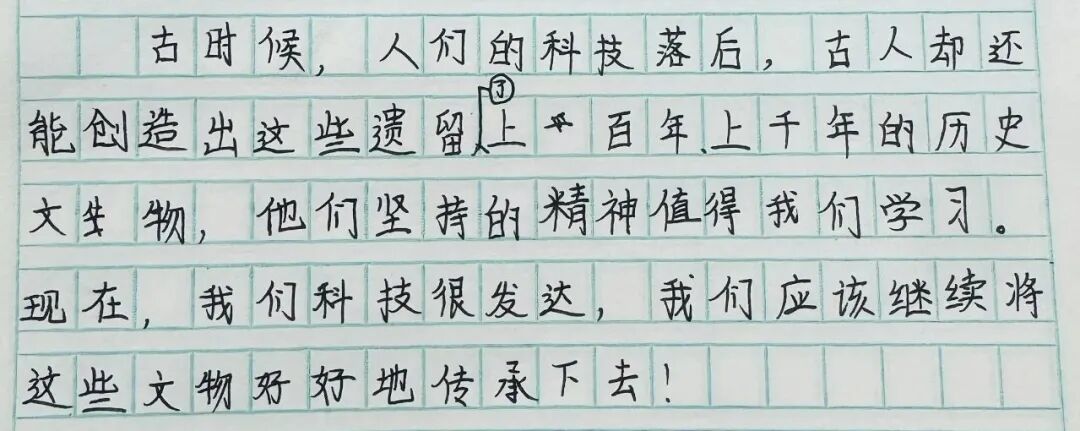 古时候，人们的科技落后，古人却还
能创造出这些遗留了上百年、上千年的历史
文物，他们坚持的精神值得我们学习。
现在，我们科技很发达，我们应该继续将
这些文物好好地传承下去！